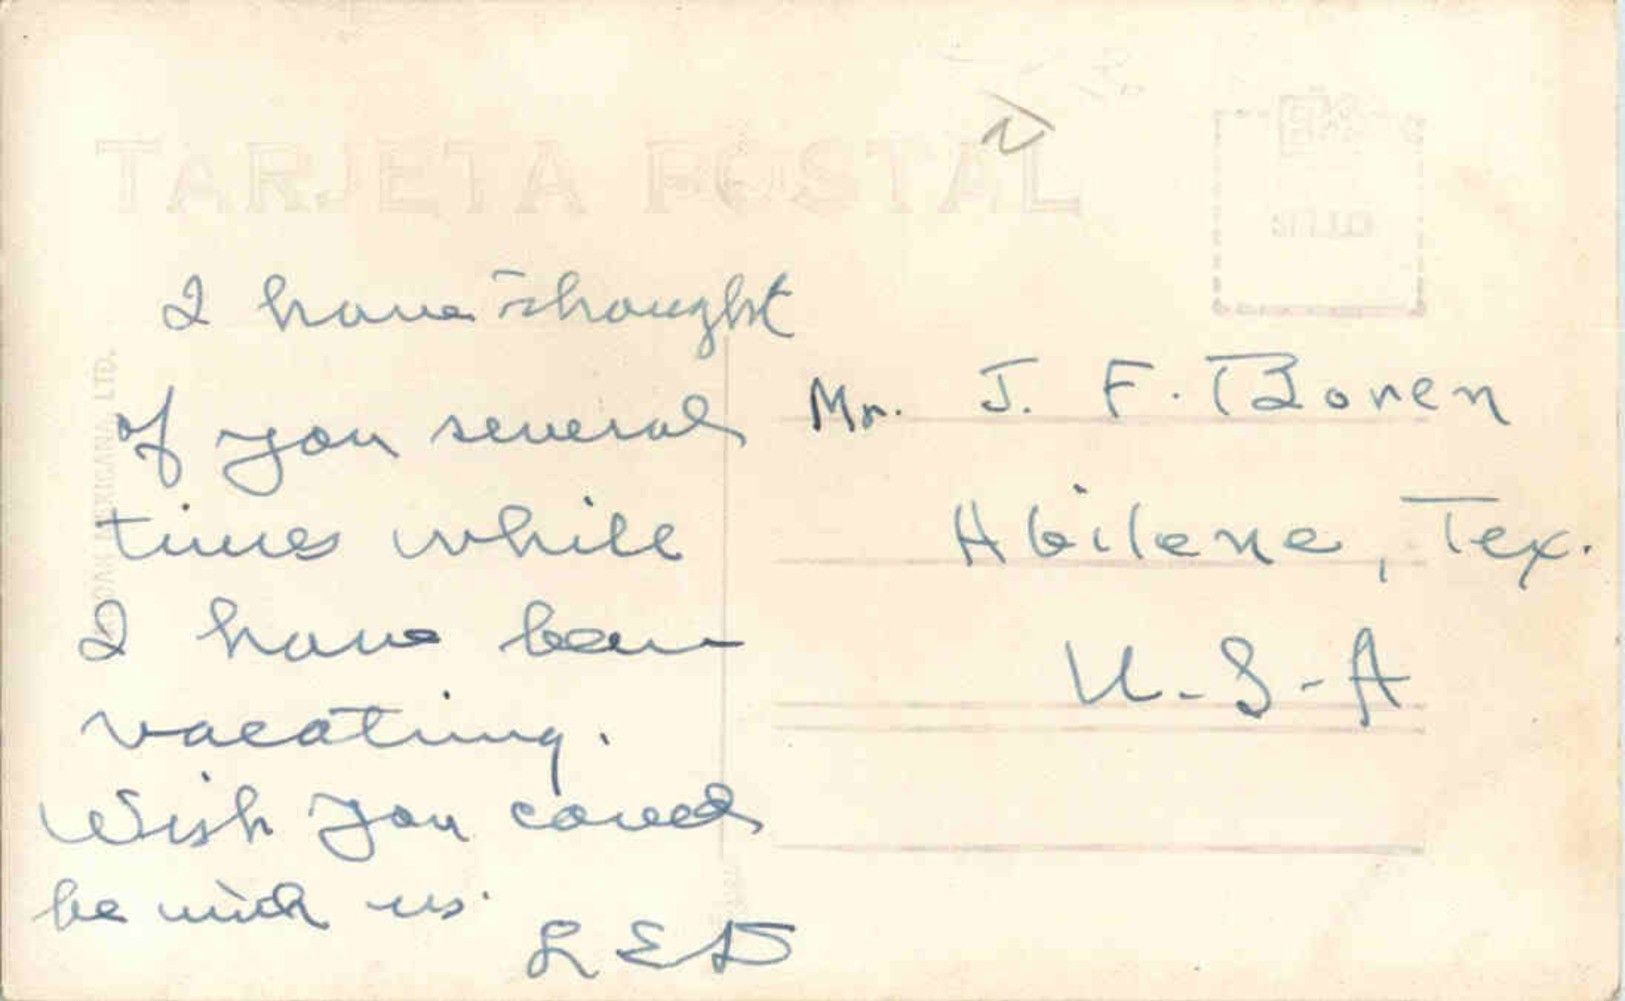 TARJETA POSTAL
SELLO
KODAK MEXICANA, LTD.
I have thought
of you several
times while
I have been
vacationing.
Wish you could
be with us.
LED
Mr. J. F. Boren
Abilene, Tex.
U-S-A